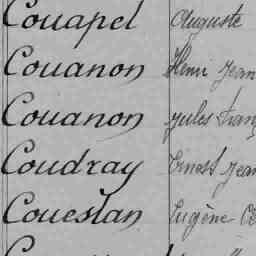 Couapel Auguste
Couanon Henri Jean
Couanon Jules
Coudray Ernest Jean
Coueslan Eugène